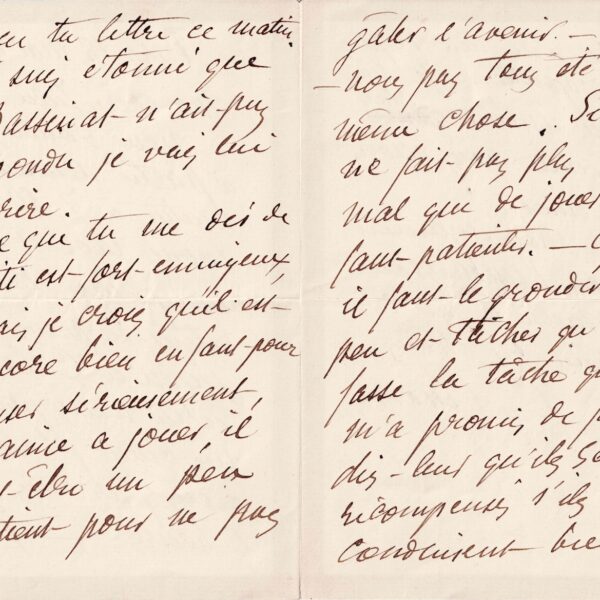 tu lettre ce matin
suis étonné que
Bassinat n'ait pas
pondu je vais lui
crire.
e que tu me dis de
ti est fort ennuyeux,
ais je crois qu'il est
core bien enfant pour
ser sérieusement,
aime a jouer, il
être un peu
tient pour ne pas
gâter l'avenir. —
nous pas tous été
même chose. Si
ne fait pas plus
mal que de jouer
faut patienter. —
il faut le gronder
peu et tâcher qu
fasse la tâche qu
m'a promis de f
dis-leur qu'ils s
récompensés s'ils
conduisent bie